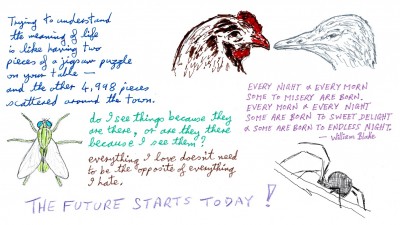 Trying to understand
the meaning of life
is like having two
pieces of a jigsaw puzzle
on your table —
and the other 4,998 pieces
scattered around the town.
EVERY NIGHT & EVERY MORN
SOME TO MISERY ARE BORN.
EVERY MORN & EVERY NIGHT
SOME ARE BORN TO SWEET DELIGHT
& SOME ARE BORN TO ENDLESS NIGHT.
— William Blake
do I see things because they
are there, or are they there
because I see them?
everything I love doesn't need
to be the opposite of everything
I hate.
THE FUTURE STARTS TODAY!